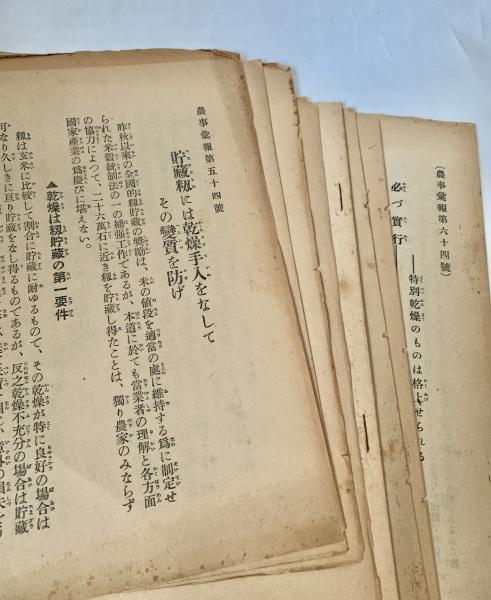 農事彙報第五十四號
貯藏籾には乾燥手入をなして
その變質を防げ
昨秋以來の全國的籾貯藏の奬勵は、米の値段を適當の處に維持する爲に制定せ
られた米穀統制法の一の補强工作であるが、本道に於ても當業者の理解と各方面
の協力によつて、二十六萬石に近き籾を貯藏し得たことは、獨り農家のみならず
國家產業の爲慶びに堪えない。
▲乾燥は籾貯藏の第一要件
籾は玄米に比較して割合に貯藏に耐ゆるもので、その乾燥が特に良好の場合は
可なり久しきに亙り貯藏をなし得るものであるが、反之乾燥不充分の場合は貯藏
(農事彙報第六十四號)
必づ實行
──特別乾燥のものは格上せられる